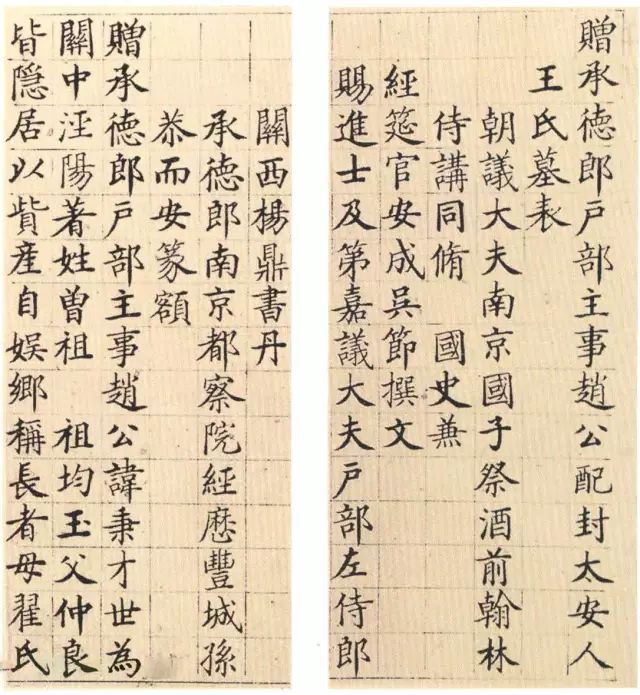 贈承德郎戶部主事趙公配封太安人
王氏墓表
朝議大夫南京國子祭酒前翰林
侍講同脩 國史兼
經筵官安成吳節撰文
賜進士及第嘉議大夫戶部左侍郎
關西楊鼎書丹
承德郎南京都察院經歷豐城孫
恭而安篆額
贈承德郎戶部主事趙公諱秉才世為
關中涇陽著姓曾祖 祖均玉父仲良
皆隱居以貲產自娛鄉稱長者母翟氏